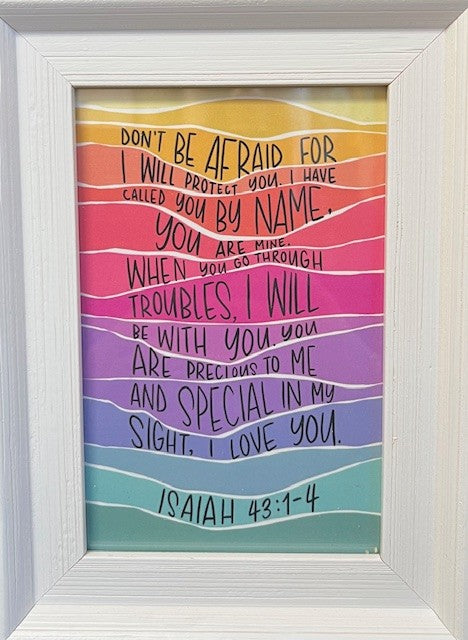 DON'T BE AFRAID FOR
I WILL PROTECT YOU. I HAVE
CALLED YOU BY NAME,
YOU ARE MINE.
WHEN YOU GO THROUGH
TROUBLES, I WILL
BE WITH YOU. YOU
ARE PRECIOUS TO ME
AND SPECIAL IN MY
SIGHT, I LOVE YOU.
ISAIAH 43:1-4